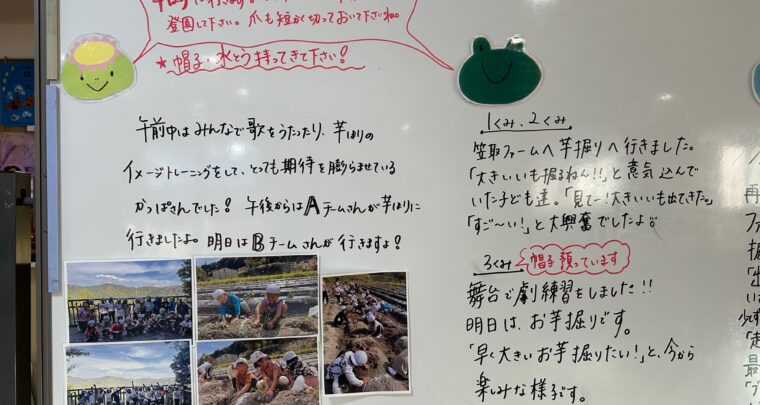 登園して下さい。爪も短かく切っておいて下さいね。
★帽子・水とう持ってきて下さい!
午前中はみんなで歌をうたったり、芋ほりの
イメージトレーニングをして、とっても期待を膨らませている
かっぱさんでした! 午後からはAチームさんが芋ほりに
行きましたよ。明日はBチームさんが行きますよ!
1くみ、2くみ
笠取ファームへ芋掘りへ行きました。
「大きいいも掘るねん!!」と意気込んで
いた子ども達。「見てー!大きいいも出てきた。」
「すご〜い!」と大興奮でしたよ。
3くみ 帽子預っています
舞台で劇練習をしました!!
明日は、お芋掘りです。
「早く大きいお芋掘りたい!」と、今から
楽しみな様子です。